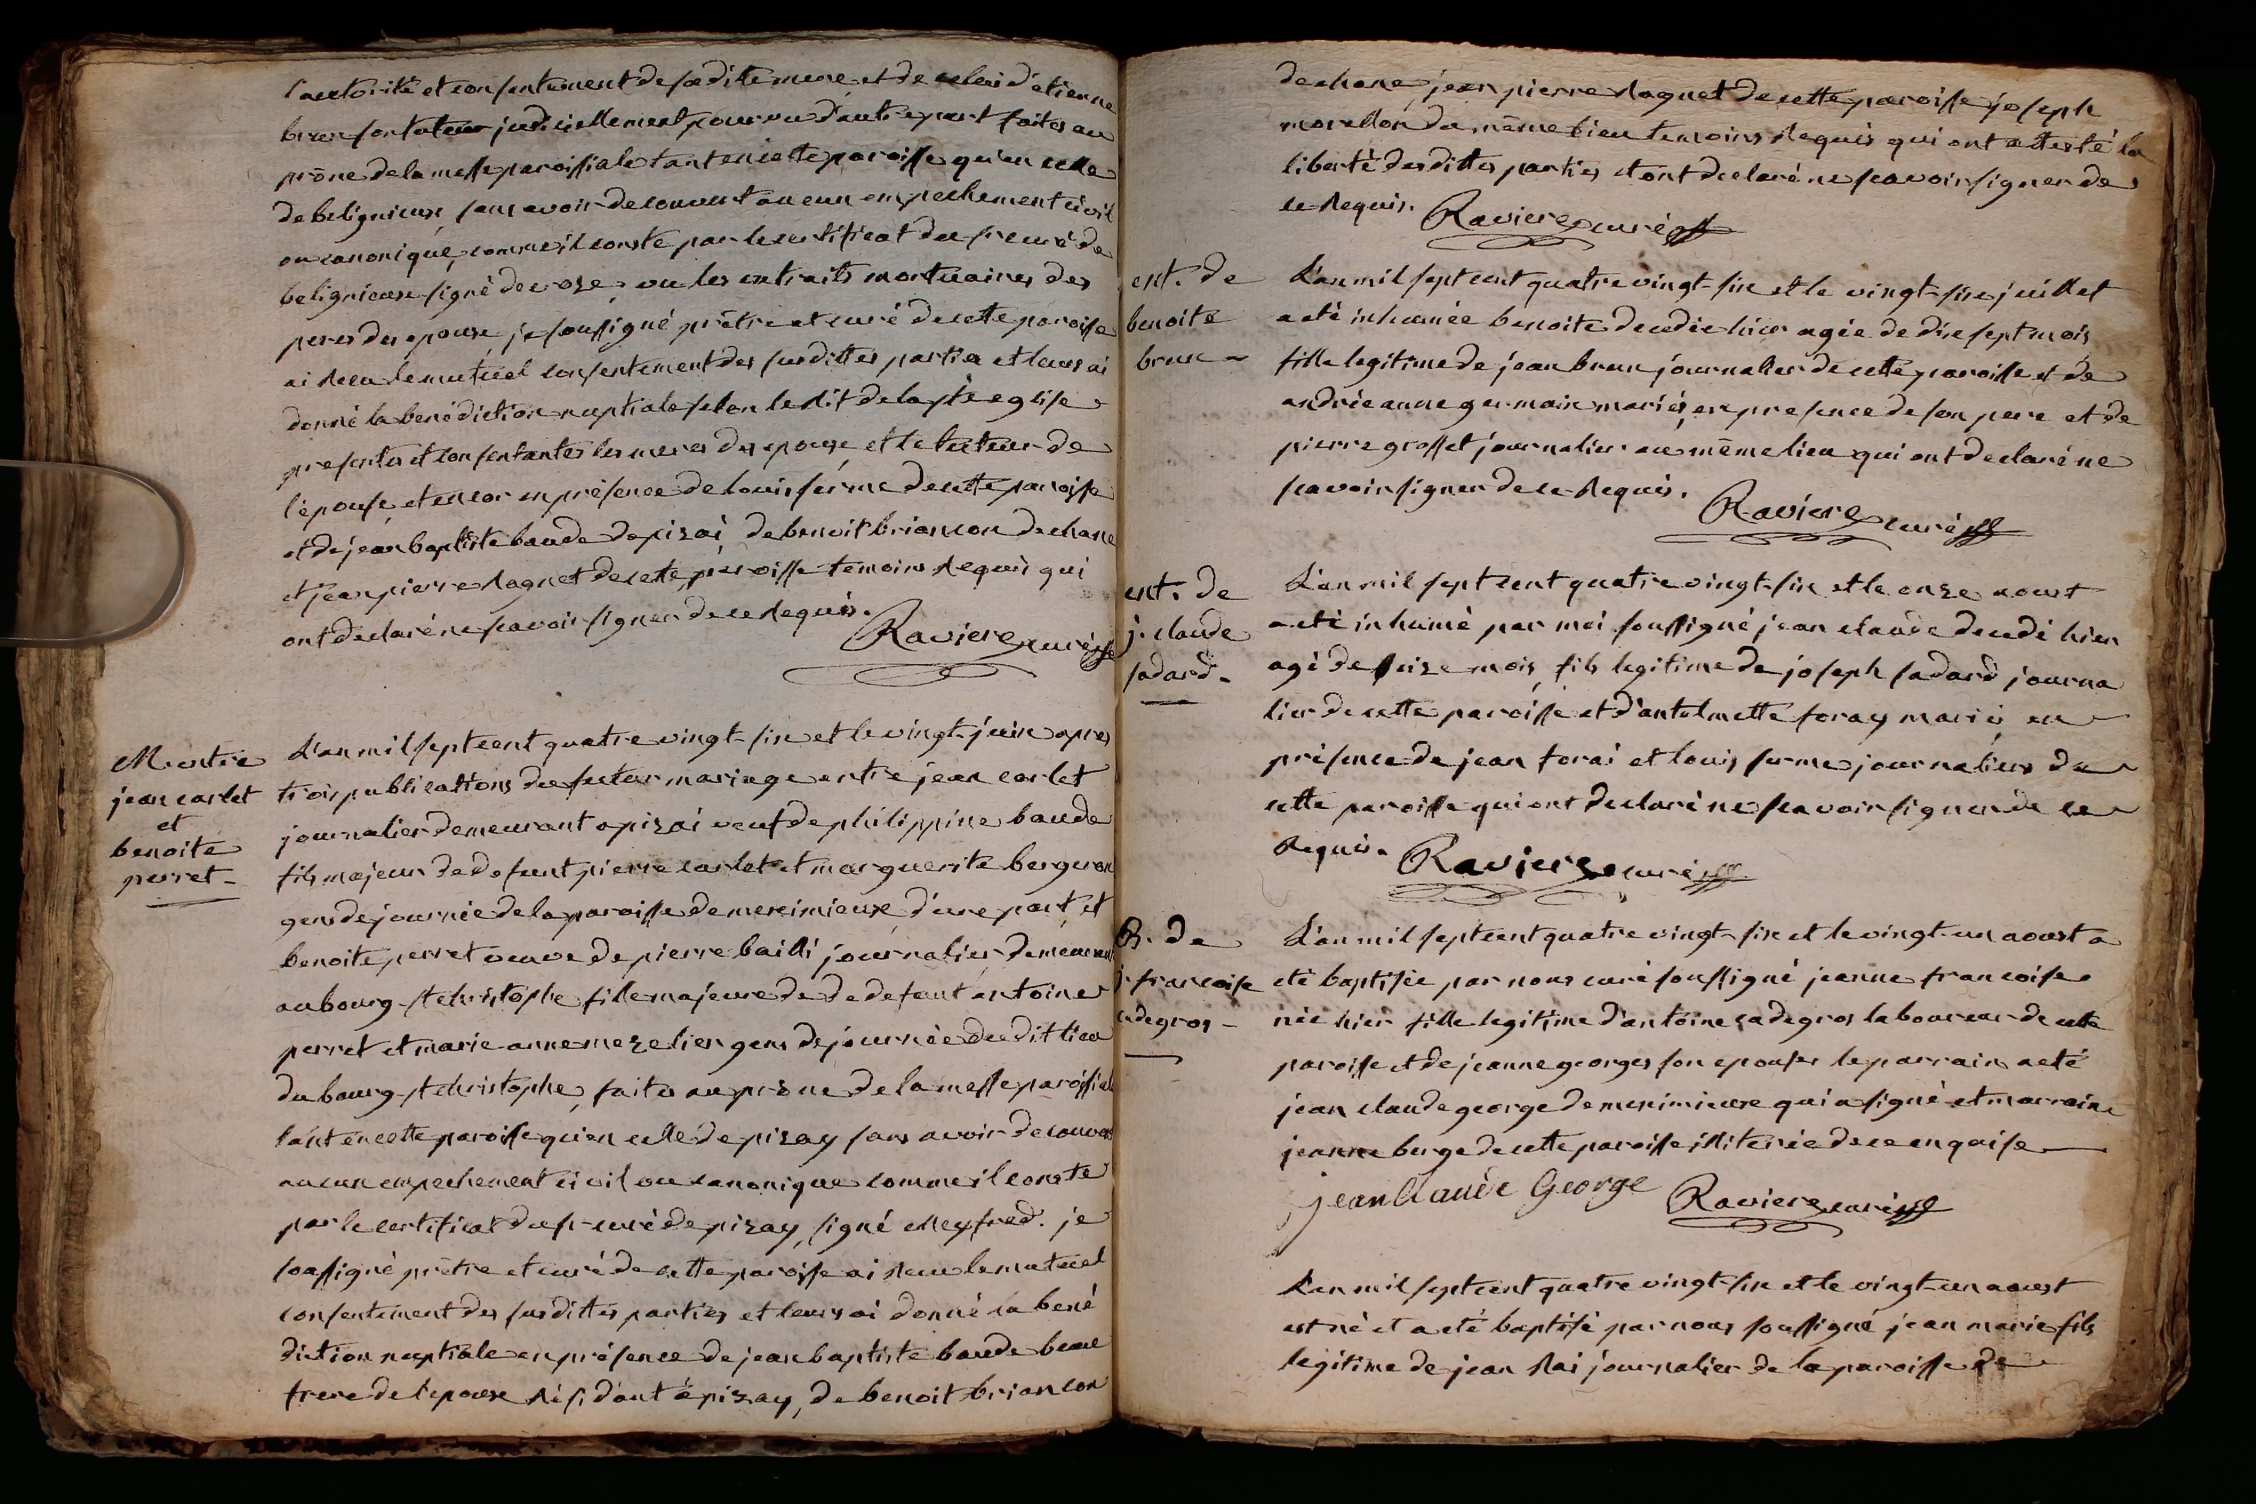 l'autorité et consentement de sa ditte mere, et de celui d'etienne
brun son tuteur judiciellement pourvu d'autre part faites au
prône de la messe paroissiale tant en cette paroisse qu'en celle
de beligneux sans avoir decouvert aucun empechement civil
ou canonique, comme il conste par le certificat du sr curé de
beligneux signé vu les extraits mortuaires des
peres des epoux, je soussigné prêtre et curé de cette paroisse
ai recu le mutuel consentement des susdittes parties et leurs ai
donné la benédiction nuptiale selon le rit de la ste eglise
presentes et consentantes les meres des epoux, et le tuteur de
l'épouse, et encor en présence de louis ferme de cette paroisse
et de jean baptiste baude de pizai, de benoit briancon de chane
et jean pierre ragnet de cette paroisse temoins requis qui
ont declaré ne scavoir signer de ce requis.
Raviere curé
M. entre
jean carlet
et
benoite
perret
L'an mil sept cent quatre vingt-six et le vingt-juin apres
trois publications du futur mariage entre jean carlet
journalier demeurant a pizai veuf de philippine baude
fils majeur de defunt pierre carlet et marguerite bergeron
gens de journée de la paroisse de meximieux d'une part, et
benoite perret veuve de pierre bailli journalier demeurant
au bourg-st christophe fille majeure de de defunt antoine
perret et marie-anne mezelier gens de journée du dit lieu
du bourg-st christophe, faites au prône de la messe paroissiale
tant en cette paroisse qu'en celle de pizay sans avoir decouvert
aucun empechement civil ou canonique comme il conste
par le certificat du sr curé de pizay, signé meyfred. je
soussigné prêtre et curé de cette paroisse ai recu le mutuel
consentement des susdittes parties et leurs ai donné la bené
diction nuptiale en présence de jean baptiste baude beau
frere de l'epoux résidant à pizay, de benoit briancon
de chane, jean pierre ragnet de cette paroisse joseph
morellon du même lieu temoins requis qui ont attesté la
liberté des dittes parties et ont declaré ne scavoir signer de
ce requis. Raviere curé
ent. de
benoite
brun
L'an mil sept cent quatre vingt-six et le vingt-six juillet
a eté inhumée benoite decedée hier agée de dix sept mois
fille legitime de jean brun journalier de cette paroisse et de
andrée anne germain mariés, en presence de son pere et de
pierre grosset journalier au même lieu qui ont declaré ne
scavoir signer de ce requis.
Raviere curé
ent. de
j. claude
sadard
L'an mil sept cent quatre vingt-six et le onze aoust
a eté inhumé par moi soussigné jean claude decedé hier
agé de seize mois, fils legitime de joseph sadard journa
lier de cette paroisse et d'antelmette foray mariés en
présence de jean forai et louis ferme journaliers de
cette paroisse qui ont declaré ne scavoir signer de ce
requis. Raviere curé
B. de
j. francoise
cadegros
L'an mil sept cent quatre vingt-six et le vingt-un aoust a
eté baptisée par nous curé soussigné jeanne francoise
née hier fille legitime d'antoine cadegros laboureur de cette
paroisse et de jeanne georges son epouse, le parrain a eté
jean claude george de meximieux qui a signé et marraine
jeanne berge de cette paroisse illiterée de ce enquise
jean Claude George Raviere curé
L'an mil sept cent quatre vingt-six et le vingt-un aoust
est né et a eté baptisé par nous soussigné jean marie fils
legitime de jean rai journalier de la paroisse de